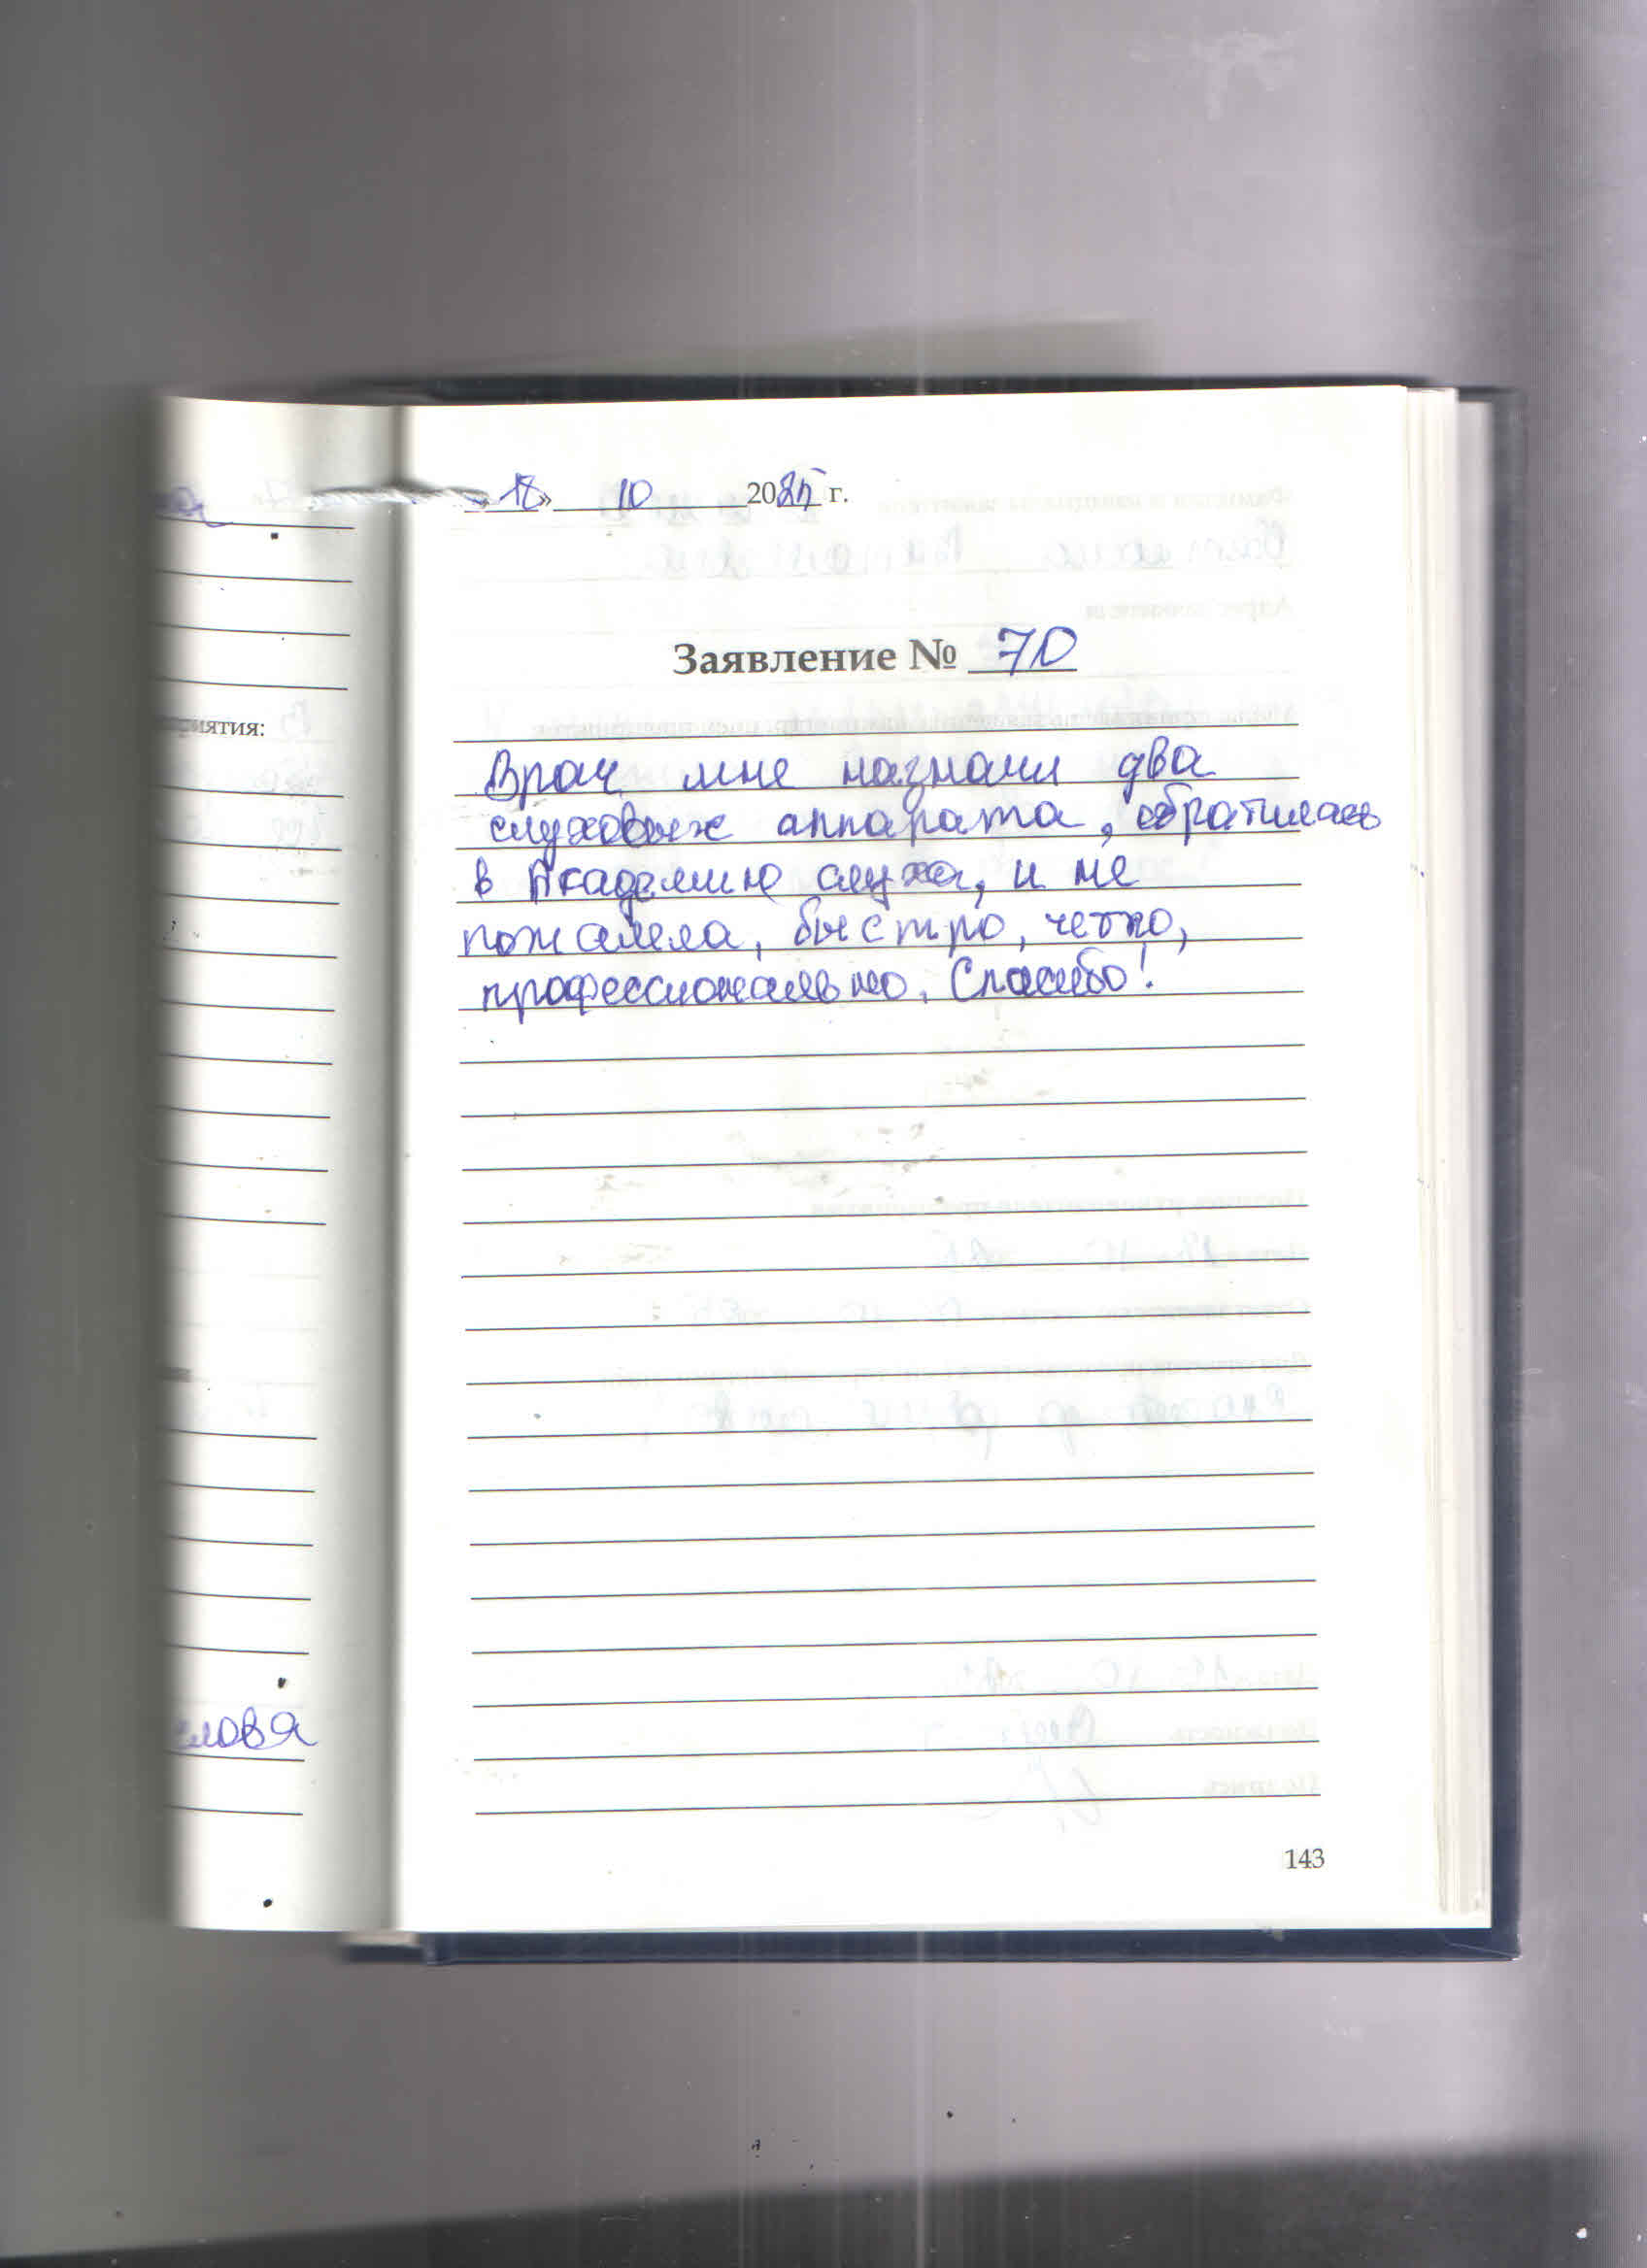 «18» 10 2025 г.
Заявление № 70
риятия:
Врач мне назначил два
слуховых аппарата, обратилась
в Академию слуха, и не
пожалела, быстро, четко,
профессионально. Спасибо!
143